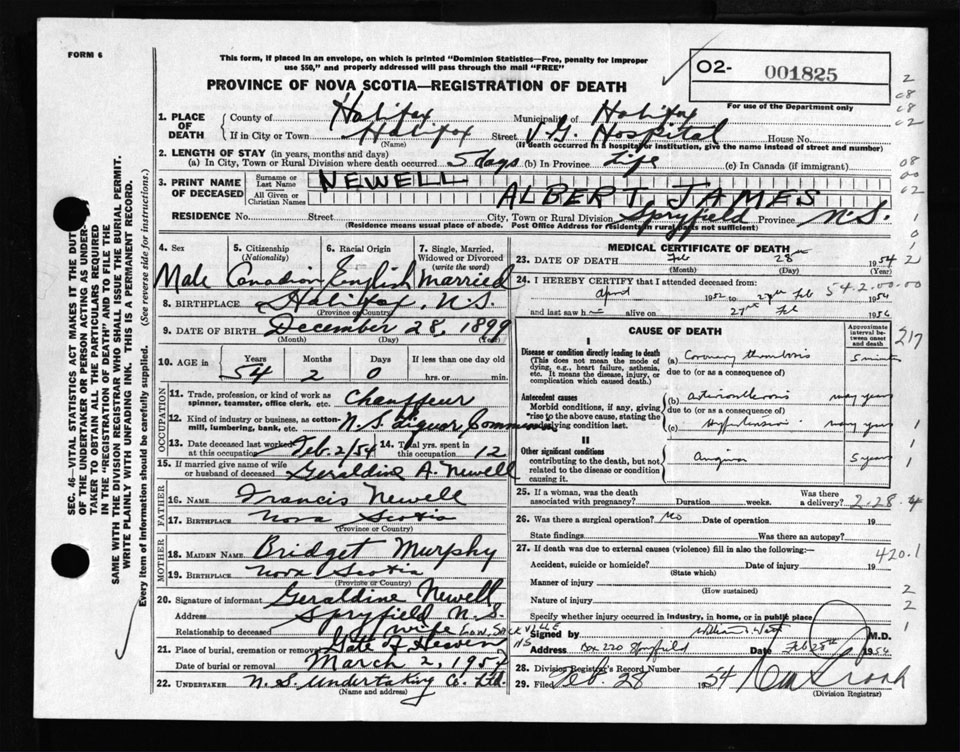 FORM 6
This form, if placed in an envelope, on which is printed "Dominion Statistics—Free, penalty for improper
use $50," and properly addressed will pass through the mail "FREE"
PROVINCE OF NOVA SCOTIA—REGISTRATION OF DEATH
O2- 001825
For use of the Department only
1. PLACE OF DEATH
County of Halifax Municipality of Halifax
If in City or Town Halifax Street V.G. Hospital House No.
(Name) (If death occurred in a hospital or institution, give the name instead of street and number)
2. LENGTH OF STAY (in years, months and days)
(a) In City, Town or Rural Division where death occurred 5 days (b) In Province Life (c) In Canada (if immigrant)
3. PRINT NAME OF DECEASED
Surname or Last Name NEWELL
All Given or Christian Names ALBERT JAMES
RESIDENCE No. Street City, Town or Rural Division Spryfield Province N.S.
(Residence means usual place of abode. Post Office Address for residents in rural parts not sufficient)
4. Sex 5. Citizenship (Nationality) 6. Racial Origin 7. Single, Married, Widowed or Divorced (write the word)
Male Canadian English Married
8. BIRTHPLACE Halifax, N.S.
(Province or Country)
9. DATE OF BIRTH December 28, 1899
(Month) (Day) (Year)
10. AGE in Years Months Days If less than one day old
54 2 0 hrs. or min.
OCCUPATION
11. Trade, profession, or kind of work as spinner, teamster, office clerk, etc. Chauffeur
12. Kind of industry or business, as cotton mill, lumbering, bank, etc. N.S. Liquor Commission
13. Date deceased last worked at this occupation Feb. 2/54 14. Total yrs. spent in this occupation 12
15. If married give name of wife or husband of deceased Geraldine A. Newell
FATHER
16. NAME Francis Newell
17. BIRTHPLACE Nova Scotia
(Province or Country)
MOTHER
18. MAIDEN NAME Bridget Murphy
19. BIRTHPLACE Nova Scotia
(Province or Country)
20. Signature of informant Geraldine Newell
Address Spryfield N.S.
Relationship to deceased wife
21. Place of burial, cremation or removal Gate of Heaven Low. SACKVILLE NS
Date of burial or removal March 2, 1954
22. UNDERTAKER N.S. Undertaking Co. Ltd.
(Name and address)
MEDICAL CERTIFICATE OF DEATH
23. DATE OF DEATH Feb 28th 1954
(Month) (Day) (Year)
24. I HEREBY CERTIFY that I attended deceased from:
April 1952 to 27th Feb 1954
542.00.00
and last saw h alive on 27th Feb 1954
CAUSE OF DEATH
Approximate interval between onset and death
I
Disease or condition directly leading to death
(This does not mean the mode of dying, e.g., heart failure, asthenia, etc. It means the disease, injury, or complication which caused death.)
(a) Coronary thrombosis 5 minutes
due to (or as a consequence of)
Antecedent causes
Morbid conditions, if any, giving rise to the above cause, stating the underlying condition last.
(b) arteriosclerosis many years
due to (or as a consequence of)
(c) Hypertension many years
II
Other significant conditions
contributing to the death, but not related to the disease or condition causing it.
Angina 5 years
25. If a woman, was the death associated with pregnancy? Duration weeks. Was there a delivery?
2-28-4
26. Was there a surgical operation? No Date of operation 19
State findings Was there an autopsy?
27. If death was due to external causes (violence) fill in also the following:—
420.1
Accident, suicide or homicide? Date of injury 19
(State which)
Manner of injury
(How sustained)
Nature of injury
Specify whether injury occurred in industry, in home, or in public place
Signed by William West M.D.
Address Box 220 Spryfield Date Feb 28th 1954
28. Division Registrar's Record Number
29. Filed Feb. 28 1954
(Division Registrar)
SEC. 46—VITAL STATISTICS ACT MAKES IT THE DUTY
OF THE UNDERTAKER OR PERSON ACTING AS UNDER-
TAKER TO OBTAIN ALL THE PARTICULARS REQUIRED
IN THE "REGISTRATION OF DEATH" AND TO FILE THE
SAME WITH THE DIVISION REGISTRAR WHO SHALL ISSUE THE BURIAL PERMIT.
WRITE PLAINLY WITH UNFADING INK. THIS IS A PERMANENT RECORD.
Every item of information should be carefully supplied. (See reverse side for instructions.)
217